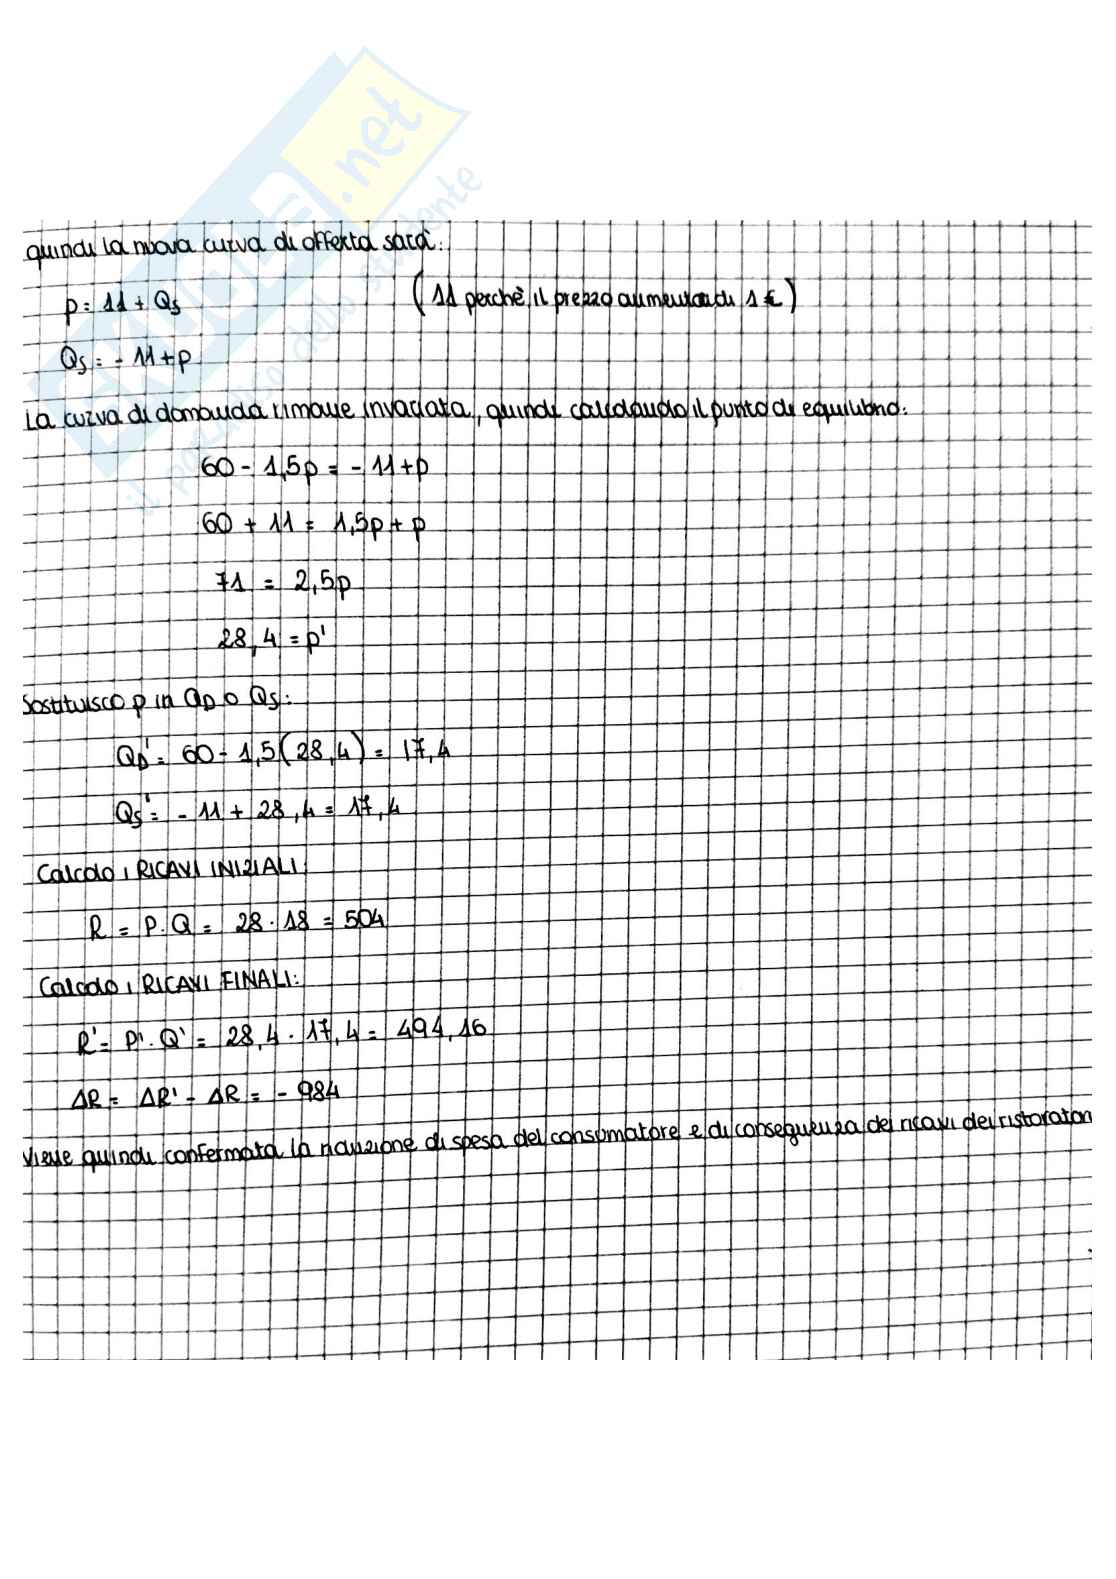 SKUOLA.net
il paradiso dello studente
quindi la nuova curva di offerta sarà:
p = 11 + Qs (11 perchè il prezzo aumenta di 1 €)
Qs = - 11 + p
La curva di domanda rimane invariata, quindi calcolando il punto di equilibrio:
60 - 1,5p = - 11 + p
60 + 11 = 1,5p + p
71 = 2,5p
28,4 = p'
Sostituisco p in QD o Qs:
QD' = 60 - 1,5(28,4) = 17,4
Qs' = - 11 + 28,4 = 17,4
Calcolo i RICAVI INIZIALI:
R = P · Q = 28 · 18 = 504
Calcolo i RICAVI FINALI:
R' = P' · Q' = 28,4 · 17,4 = 494,16
ΔR = ΔR' - ΔR = - 984
Viene quindi confermata la riduzione di spesa del consumatore e di conseguenza dei ricavi dei ristoratori